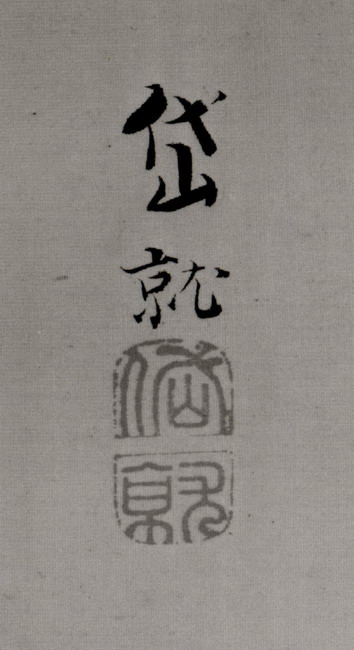 岱
就
岱
就